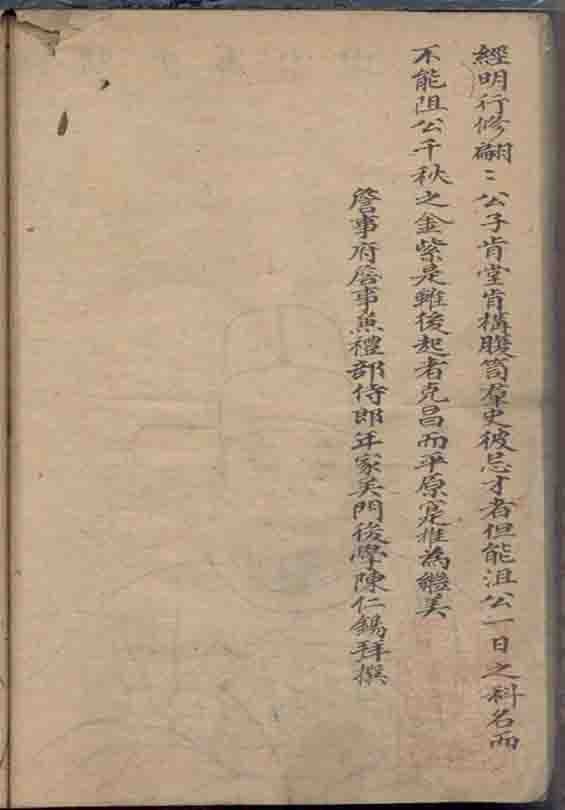 經明行修翩〻公子肯堂肯構腹笥羣史彼忌才者但能沮公一日之科名而
不能阻公千秋之金紫是雖後起者克昌而平原寔推為繼美
詹事府詹事兼禮部侍郎年家吳門後學陳仁錫拜撰